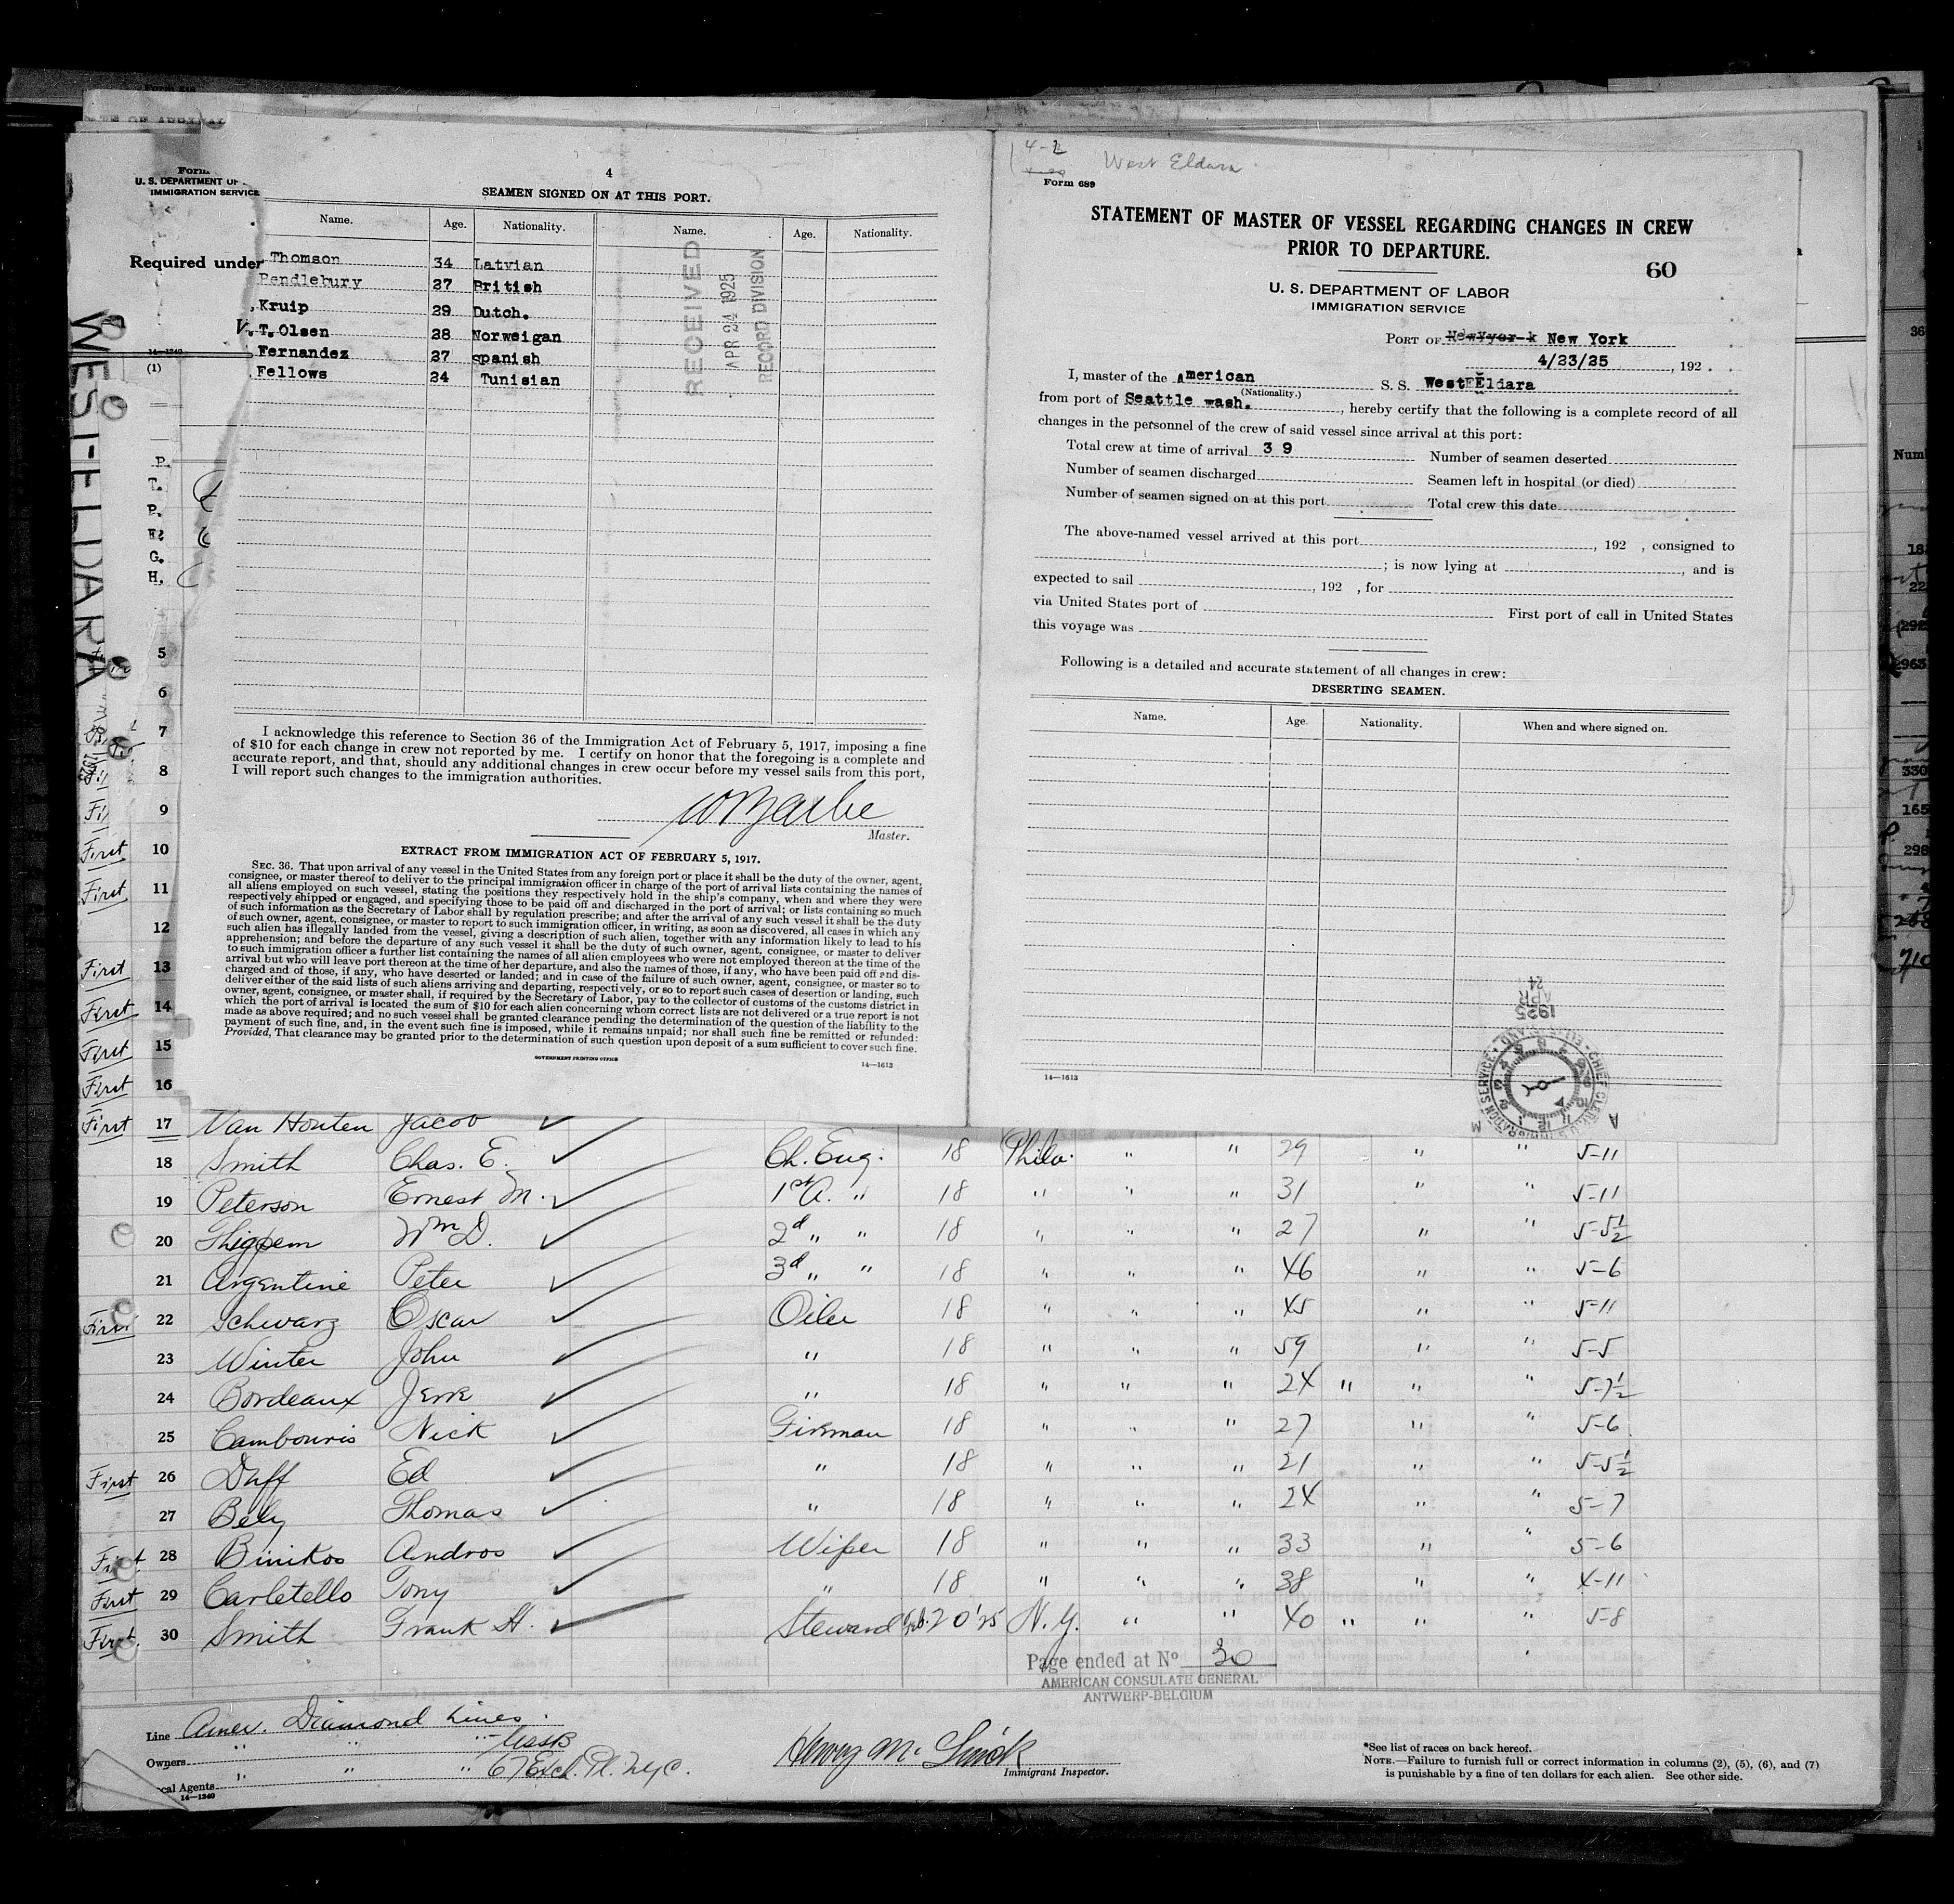 Form
U. S. DEPARTMENT OF
IMMIGRATION SERVICE
Required under
14—1240
(1)
WEST ELDARA
P.
T.
P.
F.
G.
H.
4
SEAMEN SIGNED ON AT THIS PORT.
Name. Age. Nationality. Name. Age. Nationality.
Thomson 34 Latvian
Pendlebury 27 British
Kruip 29 Dutch.
V. T. Olsen 28 Norweigan
Fernandez 27 spanish
Fellows 24 Tunisian
RECEIVED
APR 24 1925
RECORD DIVISION
I acknowledge this reference to Section 36 of the Immigration Act of February 5, 1917, imposing a fine
of $10 for each change in crew not reported by me. I certify on honor that the foregoing is a complete and
accurate report, and that, should any additional changes in crew occur before my vessel sails from this port,
I will report such changes to the immigration authorities.
Master.
EXTRACT FROM IMMIGRATION ACT OF FEBRUARY 5, 1917.
SEC. 36. That upon arrival of any vessel in the United States from any foreign port or place it shall be the duty of the owner, agent,
consignee, or master thereof to deliver to the principal immigration officer in charge of the port of arrival lists containing the names of
all aliens employed on such vessel, stating the positions they respectively hold in the ship's company, when and where they were
respectively shipped or engaged, and specifying those to be paid off and discharged in the port of arrival; or lists containing so much
of such information as the Secretary of Labor shall by regulation prescribe; and after the arrival of any such vessel it shall be the duty
of such owner, agent, consignee, or master to report to such immigration officer, in writing, as soon as discovered, all cases in which any
such alien has illegally landed from the vessel, giving a description of such alien, together with any information likely to lead to his
apprehension; and before the departure of any such vessel it shall be the duty of such owner, agent, consignee, or master to deliver
to such immigration officer a further list containing the names of all alien employees who were not employed thereon at the time of the
arrival but who will leave port thereon at the time of her departure, and also the names of those, if any, who have been paid off and dis-
charged and of those, if any, who have deserted or landed; and in case of the failure of such owner, agent, consignee, or master so to
deliver either of the said lists of such aliens arriving and departing, respectively, or so to report such cases of desertion or landing, such
owner, agent, consignee, or master shall, if required by the Secretary of Labor, pay to the collector of customs of the customs district in
which the port of arrival is located the sum of $10 for each alien concerning whom correct lists are not delivered or a true report is not
made as above required; and no such vessel shall be granted clearance pending the determination of the question of the liability to the
payment of such fine, and, in the event such fine is imposed, while it remains unpaid; nor shall such fine be remitted or refunded:
Provided, That clearance may be granted prior to the determination of such question upon deposit of a sum sufficient to cover such fine.
GOVERNMENT PRINTING OFFICE
14—1613
4-2
West Eldara
Form 689
STATEMENT OF MASTER OF VESSEL REGARDING CHANGES IN CREW
PRIOR TO DEPARTURE.
60
U. S. DEPARTMENT OF LABOR
IMMIGRATION SERVICE
PORT OF New York
4/23/25, 192 .
I, master of the American S. S. West Eldara
(Nationality.)
from port of Seattle wash. , hereby certify that the following is a complete record of all
changes in the personnel of the crew of said vessel since arrival at this port:
Total crew at time of arrival 3 9 Number of seamen deserted
Number of seamen discharged Seamen left in hospital (or died)
Number of seamen signed on at this port Total crew this date
The above-named vessel arrived at this port , 192 , consigned to
; is now lying at , and is
expected to sail , 192 , for
via United States port of First port of call in United States
this voyage was
Following is a detailed and accurate statement of all changes in crew:
DESERTING SEAMEN.
Name. Age. Nationality. When and where signed on.
14—1613
1925
APR
24
5
6
7
8
9
First 10
First 11
12
First 13
First 14
First 15
First 16
First 17 Van Houten Jacob
18 Smith Chas. E. Ch. Eng. 18 Phila. " " 29 " " 5-11
19 Peterson Ernest M. 1st A. " 18 " " " 31 " " 5-11
20 Thigpem Wm D. 2d " " 18 " " " 27 " " 5-5½
21 Argentine Peter 3d " " 18 " " " 46 " " 5-6
First 22 Schwarz Oscar Oiler 18 " " " 45 " " 5-11
23 Winter John " 18 " " " 59 " " 5-5
24 Bordeaux " 18 " " " 24 " " " 5-7½
25 Cambouris Nick Firman 18 " " " 27 " " 5-6
First 26 Duff Ed " 18 " " " 21 " " 5-5½
27 Bely Thomas " 18 " " " 24 " " 5-7
First 28 Binikos Andros Wiper 18 " " " 33 " " 5-6
First 29 Carletello Tony " 18 " " " 38 " " 4-11
First 30 Smith Frank H. Steward Feb. 20 '25 N.Y. " " 40 " " " 5-8
Page ended at No 30
AMERICAN CONSULATE GENERAL
ANTWERP-BELGIUM
Line Amer. Diamond Lines.
Owners " " " USSB
Local Agents " " " 67 Exch. Pl. NYC.
14—1240
Immigrant Inspector.
*See list of races on back hereof.
NOTE.—Failure to furnish full or correct information in columns (2), (5), (6), and (7)
is punishable by a fine of ten dollars for each alien. See other side.